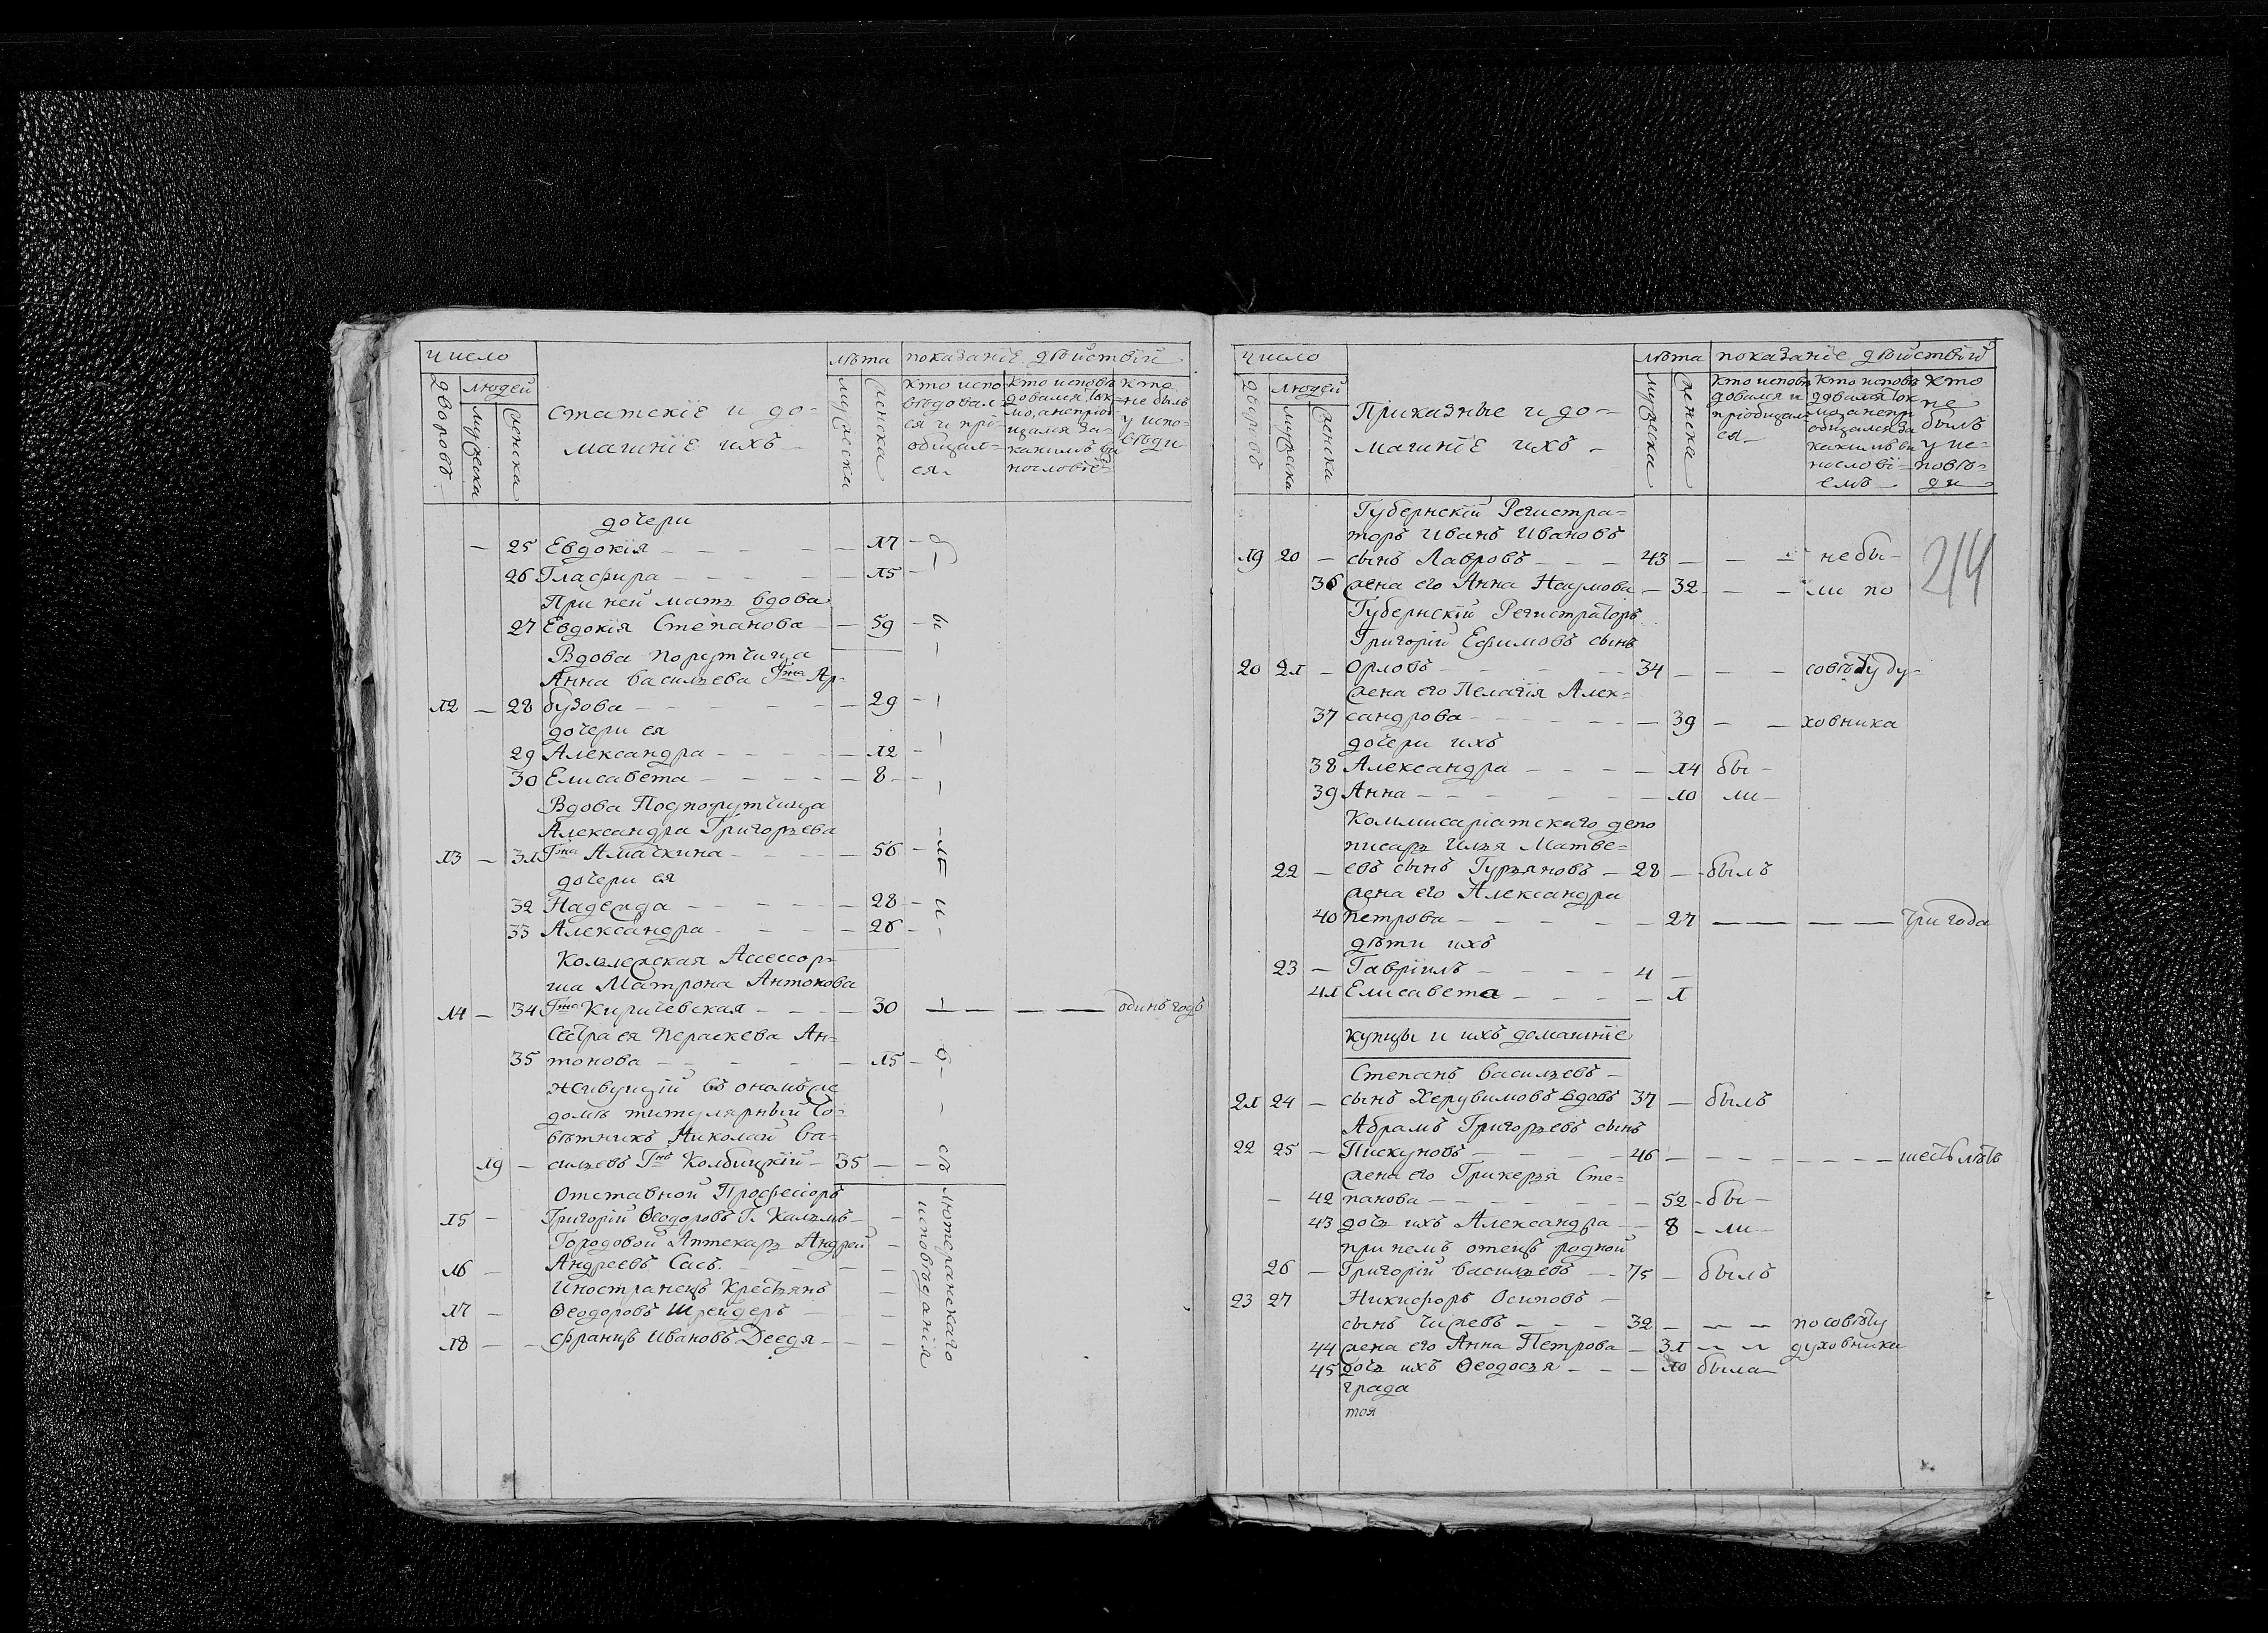 число
лѣта
показанїе дѣйствїй
дворовъ
людей
мужеска
женска
статскїе и до-
машнїе ихъ
мужеска
женска
кто испо-
вѣдовал-
ся и прі-
общал-
ся
кто исповѣ
довался ток
мо, а непріоб
щался за-
какимъ ви
нословїе
кто
не былъ
у испо-
вѣди
дочери
25 Евдокїя 17
26 Гласфира 15
При ней мать вдова
27 Евдокїя Степанова 59
Вдова порутчица
Анна Васильева Гжа Ар-
12 28 бузова 29
дочери ея
29 Александра 12
30 Елисавета 8
Вдова Подпорутчица
Александра Григорьева
13 31 Гжа Амачкина 56
дочери ея
32 Надежда 28
33 Александра 26
бы ли
Коллежская Ассесор-
ша Матрона Антонова
14 34 Гжа Киричевская 30 одинъ годъ
Сестра ея Параскева Ан-
35 тонова 15
живущїй въ ономъ же
домѣ титулярный Со-
вѣтникъ Николай Ва-
19 сильевъ Гнъ Колбицкїй 35
Отставной Профессоръ
15 Григорїй Ѳеодоровъ Г. Кальмъ
Городовой Аптекарь Андрей
16 Андреевъ Сасъ
Иностранецъ Крестьянъ
17 Ѳеодоровъ Шрейдеръ
18 Францъ Ивановъ Деедя
лютеранскаго
исповѣданія
число
лѣта
показанїе дѣйствїй
дворовъ
людей
мужеска
женска
Приказные и до-
машнїе ихъ
мужеска
женска
кто исповѣ
довался и
пріобщал-
ся
кто исповѣ
довался ток
мо, а непрі
общался за
какимъ ви
нословї-
емъ
кто
не
былъ
у ис-
повѣ-
ди
214
Губернскїй Регистра-
торъ Иванъ Ивановъ
19 20 сынъ Лавровъ 43 не бы-
36 жена его Анна Наумова 32 ли по
Губернскїй Регистраторъ
Григорїй Ефимовъ сынъ
20 21 Орловъ 34 совѣту ду-
жена его Пелагїя Алек-
37 сандрова 39 ховника
дочери ихъ
38 Александра 14 бы-
39 Анна 10 ли
Коммисаріатскаго депо
писарь Илья Матве-
22 евъ сынъ Гурьяновъ 28 былъ
жена его Александра
40 Петрова 27 три года
дѣти ихъ
23 Гаврїилъ 4
41 Елисавета 1
купцы и ихъ домашнїе
Степанъ Васильевъ
21 24 сынъ Херувимовъ вдовъ 37 былъ
Абрамъ Григорьевъ сынъ
22 25 Пискуновъ 46 шесть лѣтъ
жена его Гликерья Сте-
42 панова 52 бы-
43 дочь ихъ Александра 8 ли
при немъ отецъ родной
26 Григорїй Васильевъ 75 былъ
23 27 Никифоръ Осиповъ
сынъ Чижевъ 32 по совѣту
44 жена его Анна Петрова 31 духовника
45 дочь ихъ Ѳеодосья 10 была
града
тоя